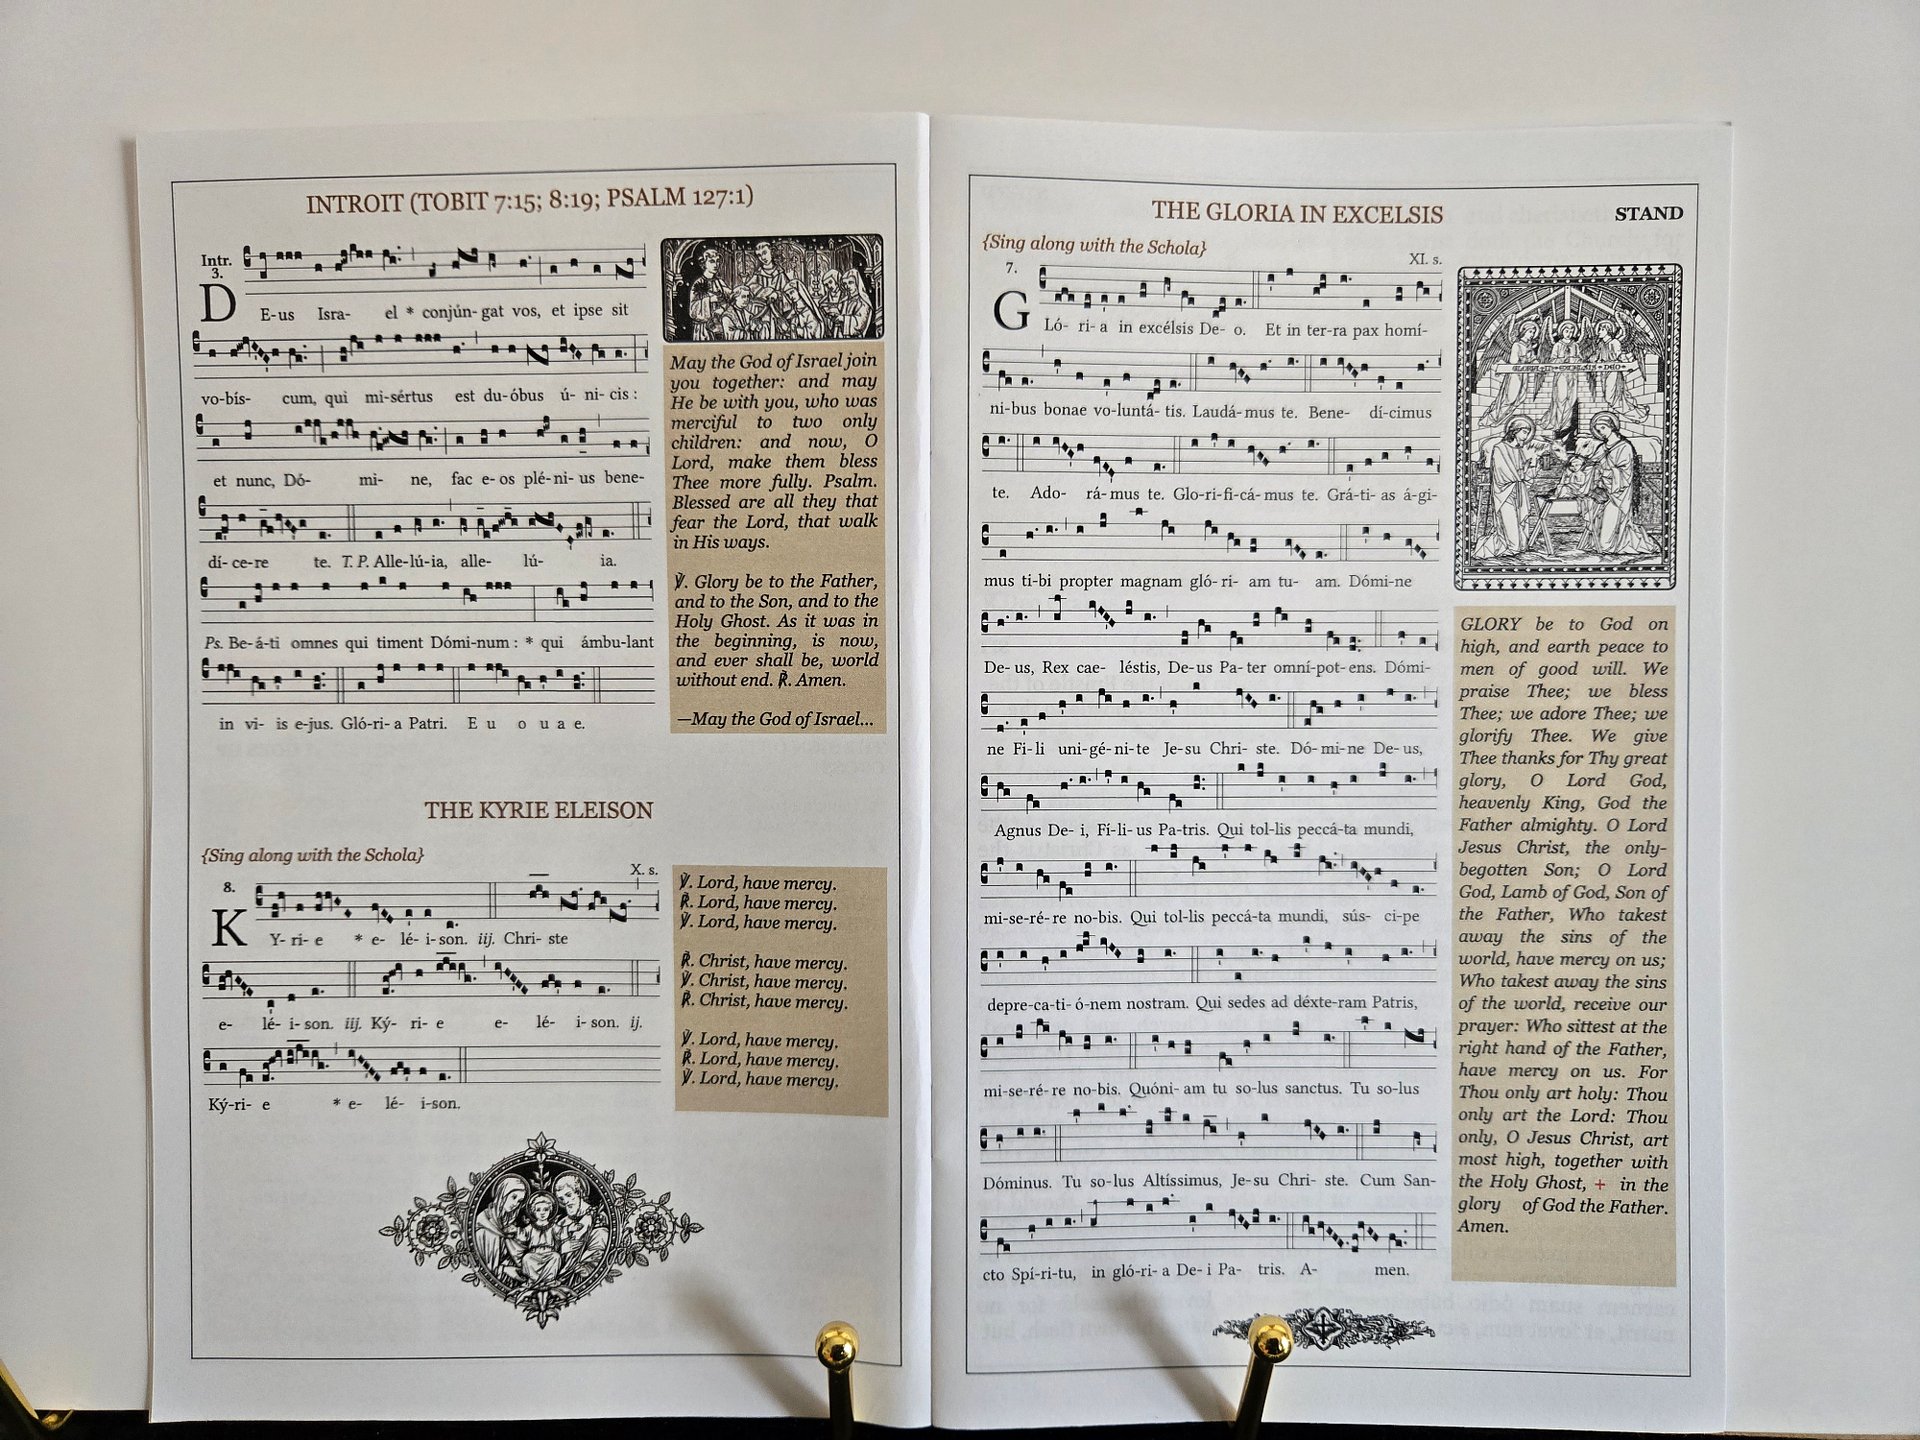 INTROIT (TOBIT 7:15; 8:19; PSALM 127:1)
Intr.
3.
D
E-us Isra- el * conjún- gat vos, et ipse sit
vo-bís- cum, qui mi-sértus est du-óbus ú- ni- cis :
et nunc, Dó- mi- ne, fac e- os plé-ni- us bene-
dí- ce-re te. T. P. Alle-lú-ia, alle- lú- ia.
Ps. Be-á-ti omnes qui timent Dómi-num : * qui ámbu-lant
in vi- is e-jus. Gló-ri- a Patri. E u o u a e.
May the God of Israel join
you together: and may
He be with you, who was
merciful to two only
children: and now, O
Lord, make them bless
Thee more fully. Psalm.
Blessed are all they that
fear the Lord, that walk
in His ways.
℣. Glory be to the Father,
and to the Son, and to the
Holy Ghost. As it was in
the beginning, is now,
and ever shall be, world
without end. ℟. Amen.
—May the God of Israel...
THE KYRIE ELEISON
{Sing along with the Schola}
X. s.
8.
K
Y- ri- e * e- lé- i- son. iij. Chri- ste
e- lé- i- son. iij. Ký- ri- e e- lé- i- son. ij.
Ký-ri- e * e- lé- i-son.
℣. Lord, have mercy.
℟. Lord, have mercy.
℣. Lord, have mercy.
℟. Christ, have mercy.
℣. Christ, have mercy.
℟. Christ, have mercy.
℣. Lord, have mercy.
℟. Lord, have mercy.
℣. Lord, have mercy.
THE GLORIA IN EXCELSIS
STAND
{Sing along with the Schola}
XI. s.
7.
G
Ló- ri- a in excélsis De- o. Et in ter-ra pax homí-
ni-bus bonae vo-luntá- tis. Laudá-mus te. Bene- dí-cimus
te. Ado- rá-mus te. Glo-ri-fi-cá-mus te. Grá-ti- as á-gi-
mus ti-bi propter magnam gló-ri- am tu- am. Dómi-ne
De- us, Rex cae- léstis, De-us Pa-ter omní-pot-ens. Dómi-
ne Fi-li uni-gé-ni-te Je-su Chri- ste. Dó-mi-ne De-us,
Agnus De- i, Fí-li- us Pa-tris. Qui tol-lis peccá-ta mundi,
mi-se-ré-re no-bis. Qui tol-lis peccá-ta mundi, sús- ci-pe
depre-ca-ti- ó-nem nostram. Qui sedes ad déxte-ram Patris,
mi-se-ré-re no-bis. Quóni- am tu so-lus sanctus. Tu so-lus
Dóminus. Tu so-lus Altíssimus, Je-su Chri- ste. Cum San-
cto Spí-ri-tu, in gló-ri- a De- i Pa- tris. A- men.
GLORIA IN EXCELSIS DEO
GLORY be to God on
high, and earth peace to
men of good will. We
praise Thee; we bless
Thee; we adore Thee; we
glorify Thee. We give
Thee thanks for Thy great
glory, O Lord God,
heavenly King, God the
Father almighty. O Lord
Jesus Christ, the only-
begotten Son; O Lord
God, Lamb of God, Son of
the Father, Who takest
away the sins of the
world, have mercy on us;
Who takest away the sins
of the world, receive our
prayer: Who sittest at the
right hand of the Father,
have mercy on us. For
Thou only art holy: Thou
only art the Lord: Thou
only, O Jesus Christ, art
most high, together with
the Holy Ghost, + in the
glory of God the Father.
Amen.